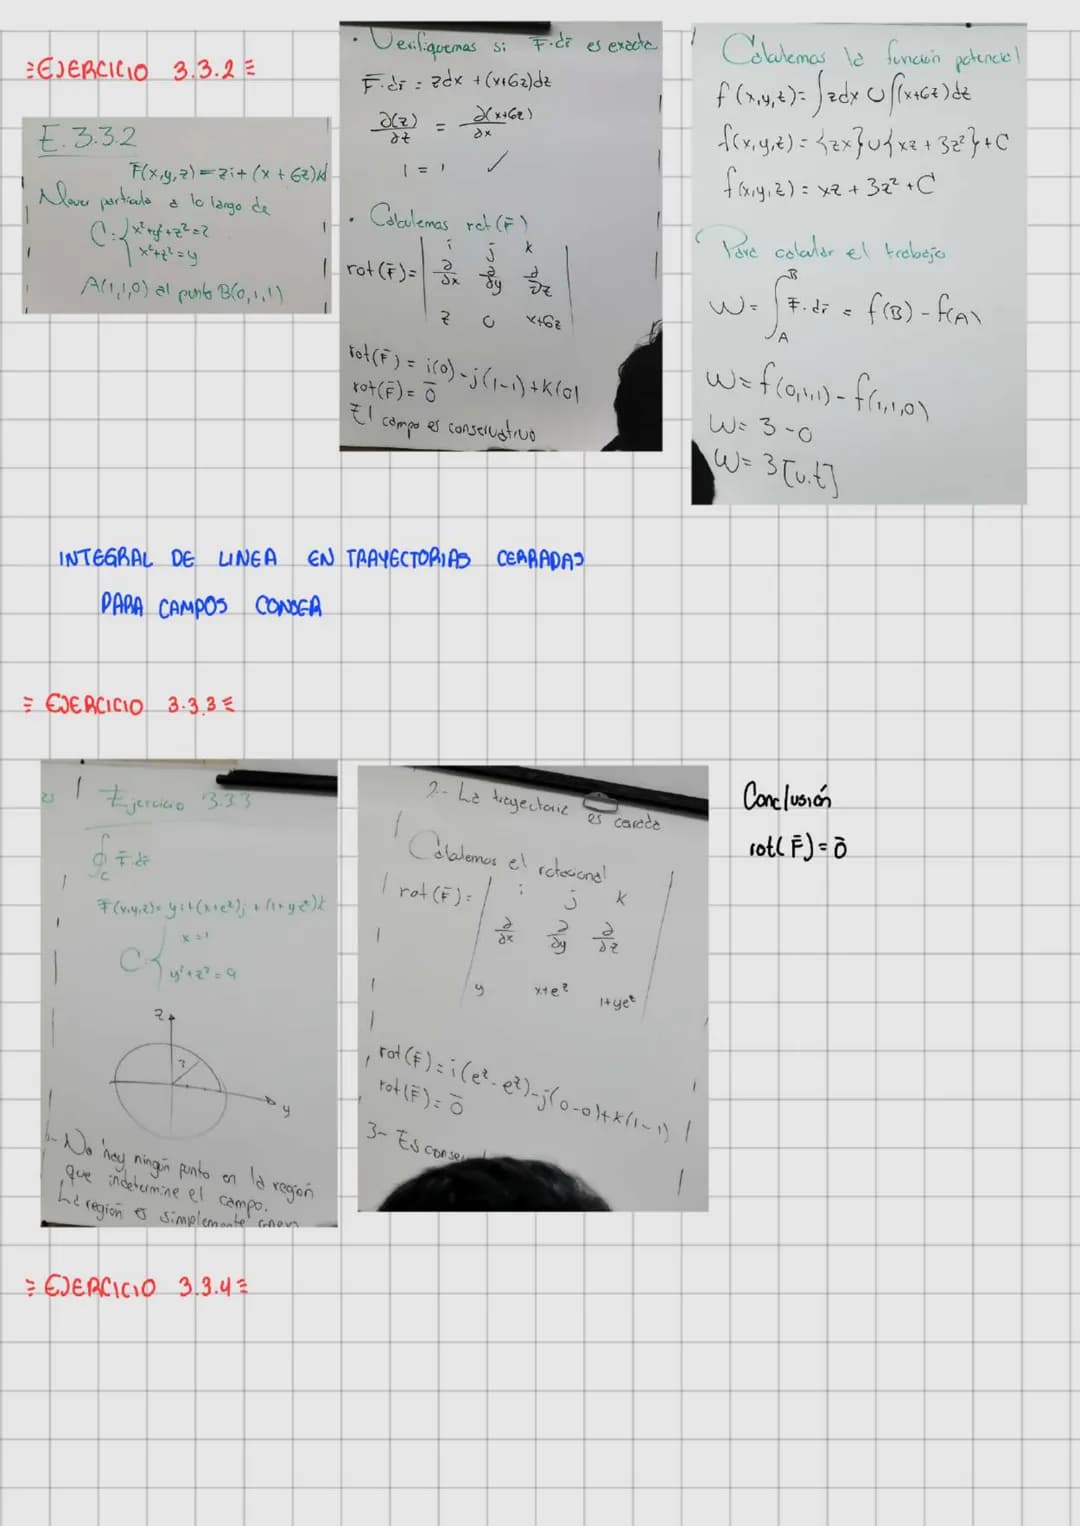 EJERCICIO 3.3.2
E. 3.3.2
F̄(x,y,z) = zi + (x + 6z)k
Mover particula a lo largo de
C: { x²+y²+z²=2
x²+z²=y
A(1,1,0) al punto B(0,1,1)
· Verifiquemos si F̄·dr̄ es exacta
F̄·dr̄ = zdx + (x+6z)dz
∂(z)/∂z = ∂(x+6z)/∂x
1 = 1 ✓
· Calculemos rot(F̄)
i j k
rot(F̄) = ∂/∂x ∂/∂y ∂/∂z
z 0 x+6z
rot(F̄) = i(0) - j(1-1) + k(0)
rot(F̄) = 0̄
El campo es conservativo
Calculemos la función potencial
f(x,y,z) = ∫zdx ∪ ∫(x+6z)dz
f(x,y,z) = {zx} ∪ {xz + 3z²} + C
f(x,y,z) = xz + 3z² + C
Para calcular el trabajo
W = ∫_A^B F̄·dr̄ = f(B) - f(A)
W = f(0,1,1) - f(1,1,0)
W = 3 - 0
W = 3 [u.t]
INTEGRAL DE LINEA EN TRAYECTORIAS CERRADAS
PARA CAMPOS CONSER
EJERCICIO 3.3.3
Ejercicio 3.3.3
∮_C F̄·dr̄
F̄(x,y,z) = yi + (x+e^z)j + (1+ye^z)k
C { x=1
y²+z²=9
z
3
y
1- No hay ningún punto en la región
que indetermine el campo.
La región es simplemente
2- La trayectoria es cerrada
Calculemos el rotacional
i j k
rot(F̄) = ∂/∂x ∂/∂y ∂/∂z
y x+e^z 1+ye^z
rot(F̄) = i(e^z - e^z) - j(0-0) + k(1-1)
rot(F̄) = 0̄
3- Es
Conclusión
rot(F̄) = 0̄
EJERCICIO 3.3.4